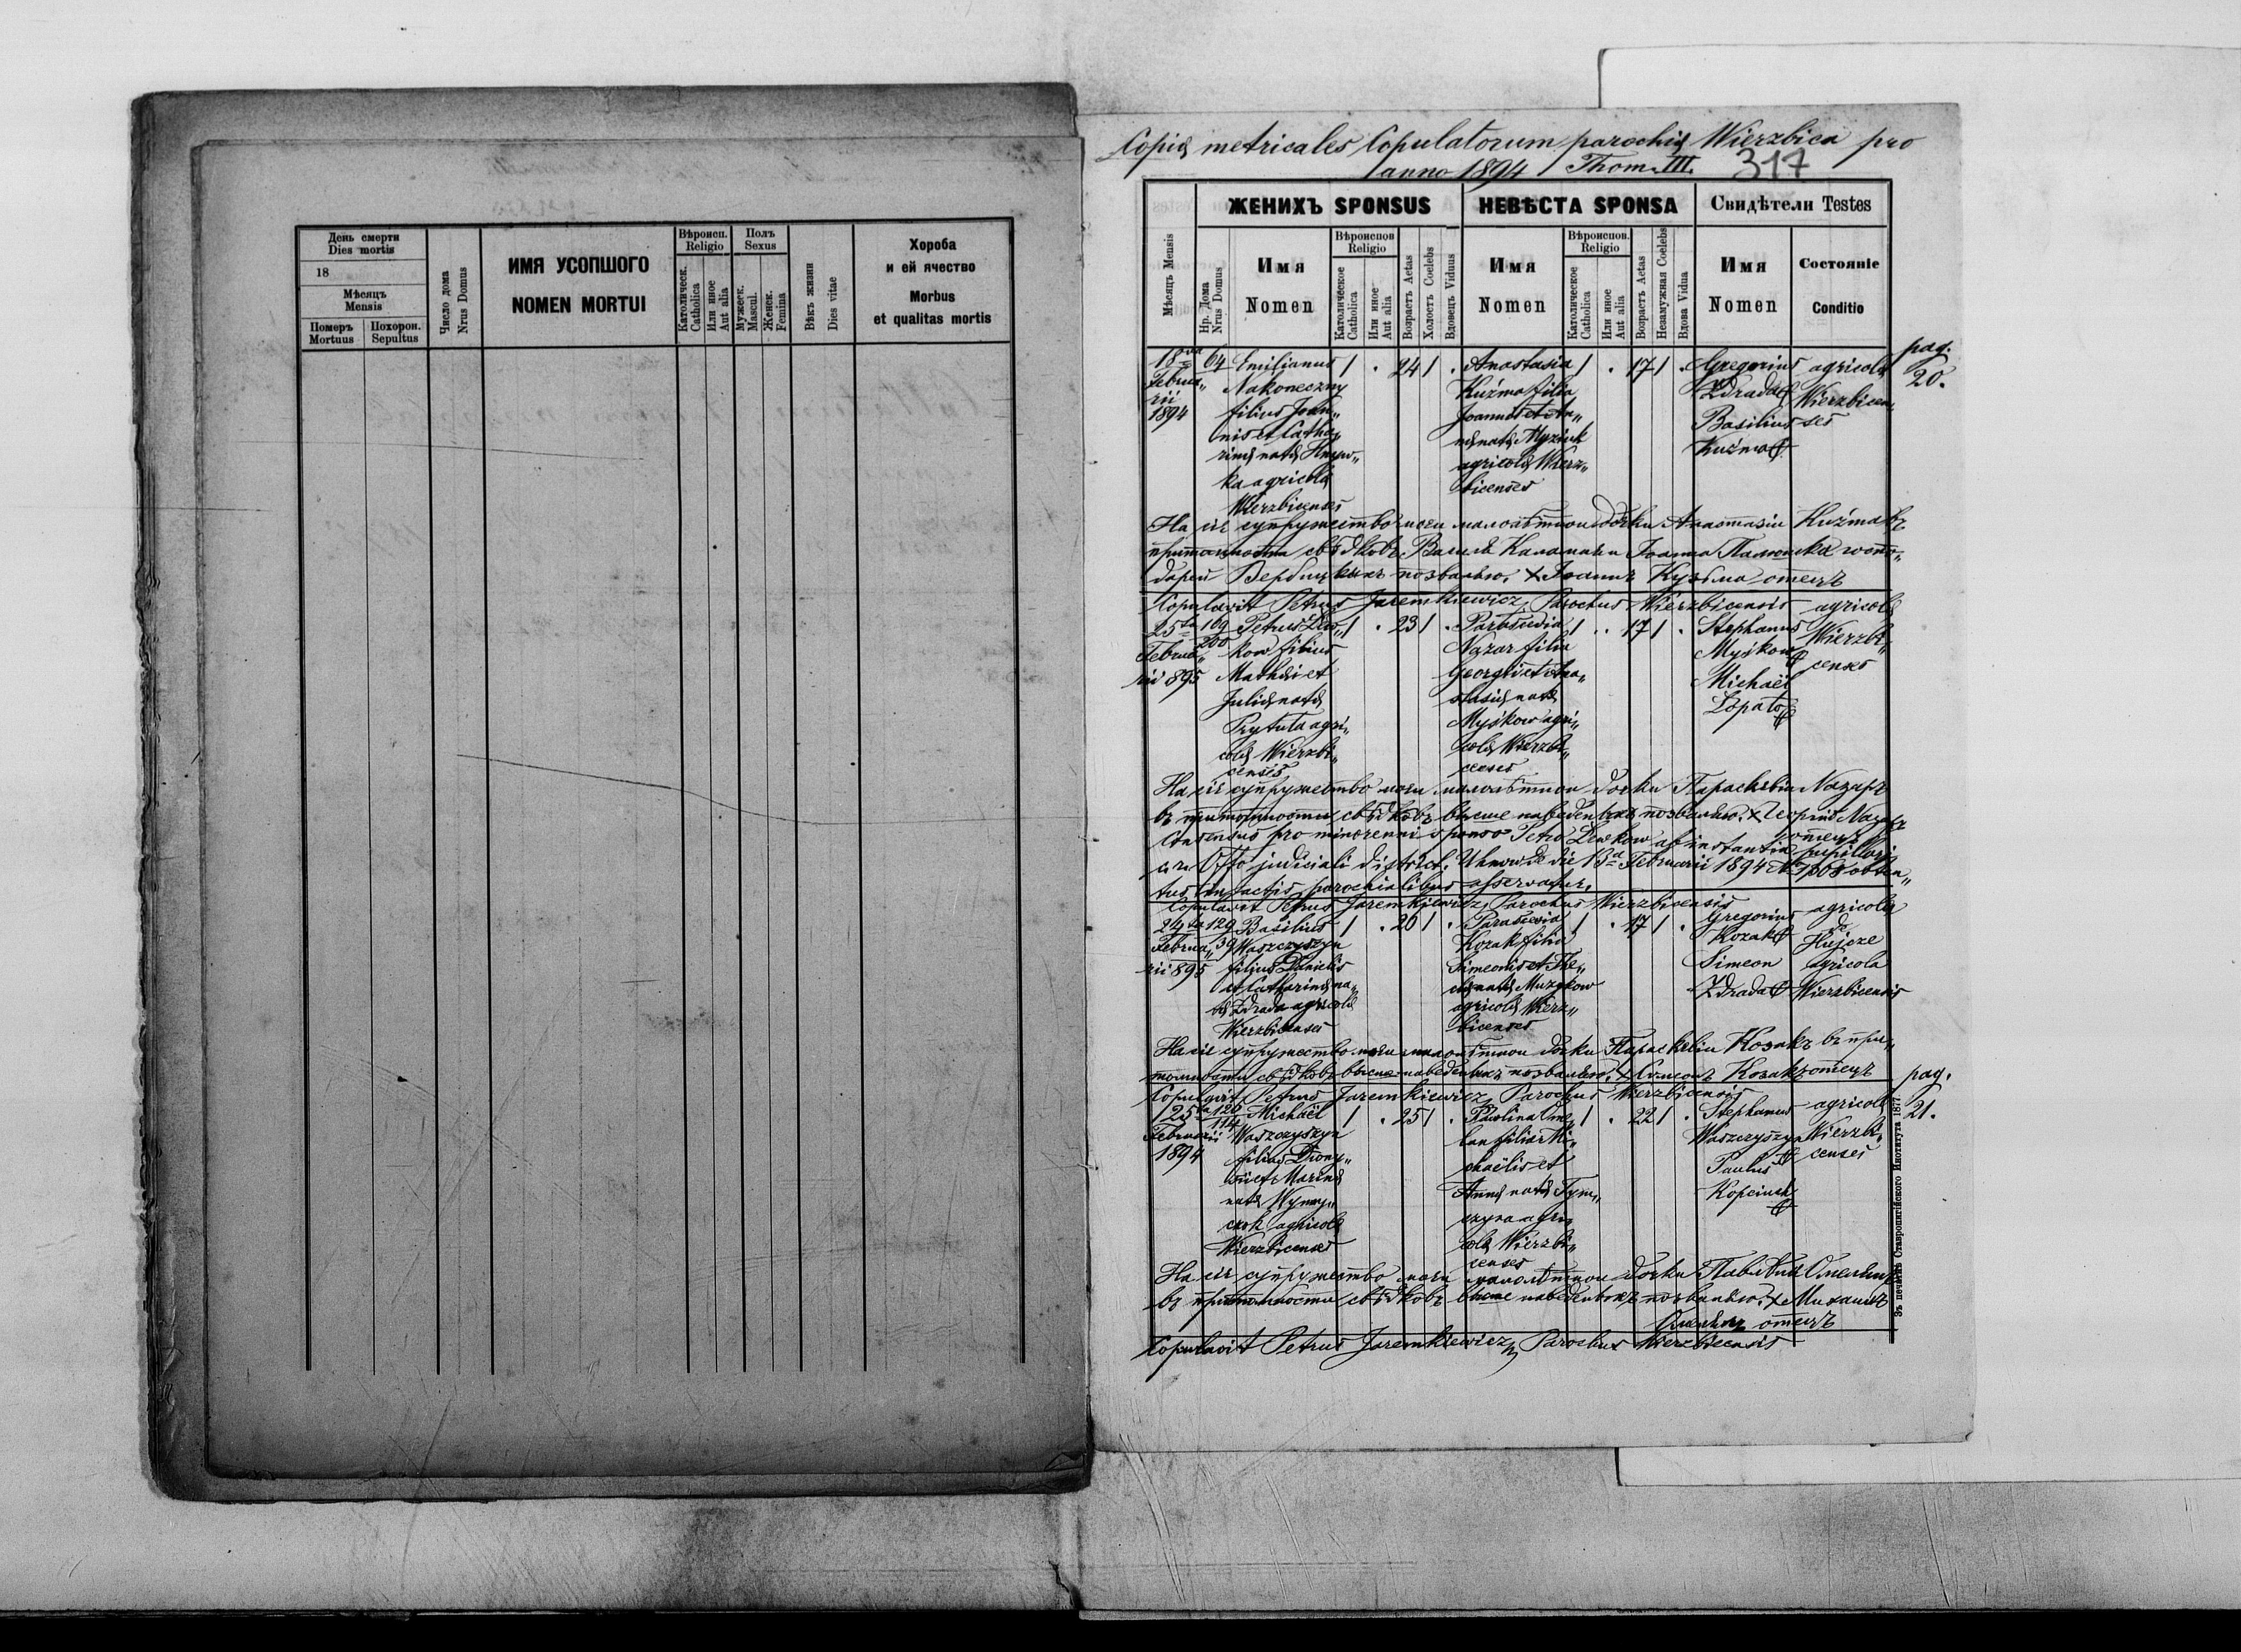 День смерти
Dies mortis
18
Мѣсяцъ
Mensis
Померъ
Mortuus
Похорон.
Sepultus
Число дома
Nrus Domus
ИМЯ УСОПШОГО
NOMEN MORTUI
Вѣроисп.
Religio
Католическ.
Catholica
Или иное
Aut alia
Полъ
Sexus
Мужеск.
Mascul.
Женск.
Femina
Вѣкъ жизни
Dies vitae
Хороба
и ей ячество
Morbus
et qualitas mortis
Copiæ metricales Copulatorum parochiæ Wierzbica pro
anno 1894 Thom. III. 317
ЖЕНИХЪ SPONSUS
НЕВѢСТА SPONSA
Свидѣтели Testes
Мѣсяцъ Mensis
Нр. Дома
Nrus Domus
Имя
Nomen
Вѣроиспов
Religio
Католическое
Catholica
Или иное
Aut alia
Возрастъ Aetas
Холостъ Coelebs
Вдовецъ Viduus
Имя
Nomen
Вѣроиспов.
Religio
Католическое
Catholica
Или иное
Aut alia
Возрастъ Aetas
Незамужная Coelebs
Вдова Vidua
Имя
Nomen
Состояніе
Conditio
pag.
20.
18va
Februa„
rii
1894
64
Emilianus
Nakoneczny
filius Joan„
nis et Catha„
rinæ natæ
ka agricolæ
Wierzbicenses
1 . 24 1 .
Anastasia
Kuźma filia
Joannis et An„
næ natæ
agricolæ Wierz„
bicenses
1 . 17 1 .
Gregorius
Zdrada
Basilius
Kuźma
agricolæ
Wierzbicen„
ses
На сіе супружество моеи малолѣтнои дочки Анастасіи Kuźma въ
притомности свѣдковъ Василя и Іоанна госпо„
дарей Вербицкихъ позваляю. + Іоаннъ Кузьма отецъ
Copulavit Petrus Jaremkiewicz, Parochus Wierzbicensis
25ta
Februa„
rii 895
169
200
Petrus Lew„
kow filius
Mathæi et
Juliæ natæ
Prytuła agri„
colæ Wierzbi„
censes
1 . 23 1 .
Nazar filia
Georgii et Ana„
stasiæ natæ
Myśkow agri„
colæ Wierzbi„
censes
1 . . 17 1 .
Stephanus
Myśkow
Michaël
Łopato
agricolæ
Wierzbi„
censes
На сіе супружество моеи малолѣтнои дочки Параскевіи Назаръ
въ притомности свѣдковъ выше наведеныхъ позваляю.
отецъ
Consensus pro minorenni sponso Petro Lewkow ab instantia pupillari
judiciali district. Uhnow de die 13a Februarii 1894
tus in actis parochialibus asservatur.
Copulavit Petrus Jaremkiewicz, Parochus Wierzbicensis
Februa„
rii 895
129
39
Basilius
Waszczyszyn
filius Danielis
et Catharinæ na„
tæ Zdrada agricolæ
Wierzbicenses
1 . 26 1 .
Parascevia
Kozak filia
Simeonis et The„
clæ natæ Muzykow
agricolæ Wierz„
bicenses
1 . 17 1 .
Gregorius
Kozak
Simeon
Zdrada
agricola
de
Hujcze
agricola
Wierzbicensis
На сіе супружество моеи малолѣтнои дочки Параскевіи Козакъ въ при„
томности свѣдковъ выше наведеныхъ позваляю. + Симеонъ Козакъ отецъ
Copulavit Petrus Jaremkiewicz, Parochus Wierzbicensis
pag.
21.
25ta
Februarii
1894
120
114
Michaël
Waszczyszyn
filius Diony„
sii et Marinæ
natæ
agricolæ
Wierzbicenses
1 . 25 1 .
Paulina Ome„
lan filia Mi„
chaëlis et
Annæ natæ Tym„
czyna agri„
colæ Wierzbi„
censes
1 . 22 1 .
Stephanus
Waszczyszyn
Paulus
Kopciuch
agricolæ
Wierzbi„
censes
На сіе супружество моеи малолѣтнои дочки
въ притомности свѣдковъ выше наведеныхъ позваляю. + Михаилъ
отецъ
Copulavit Petrus Jaremkiewicz, Parochus Wierzbicensis
Зъ печатнѣ Ставропигійского Института 1877.